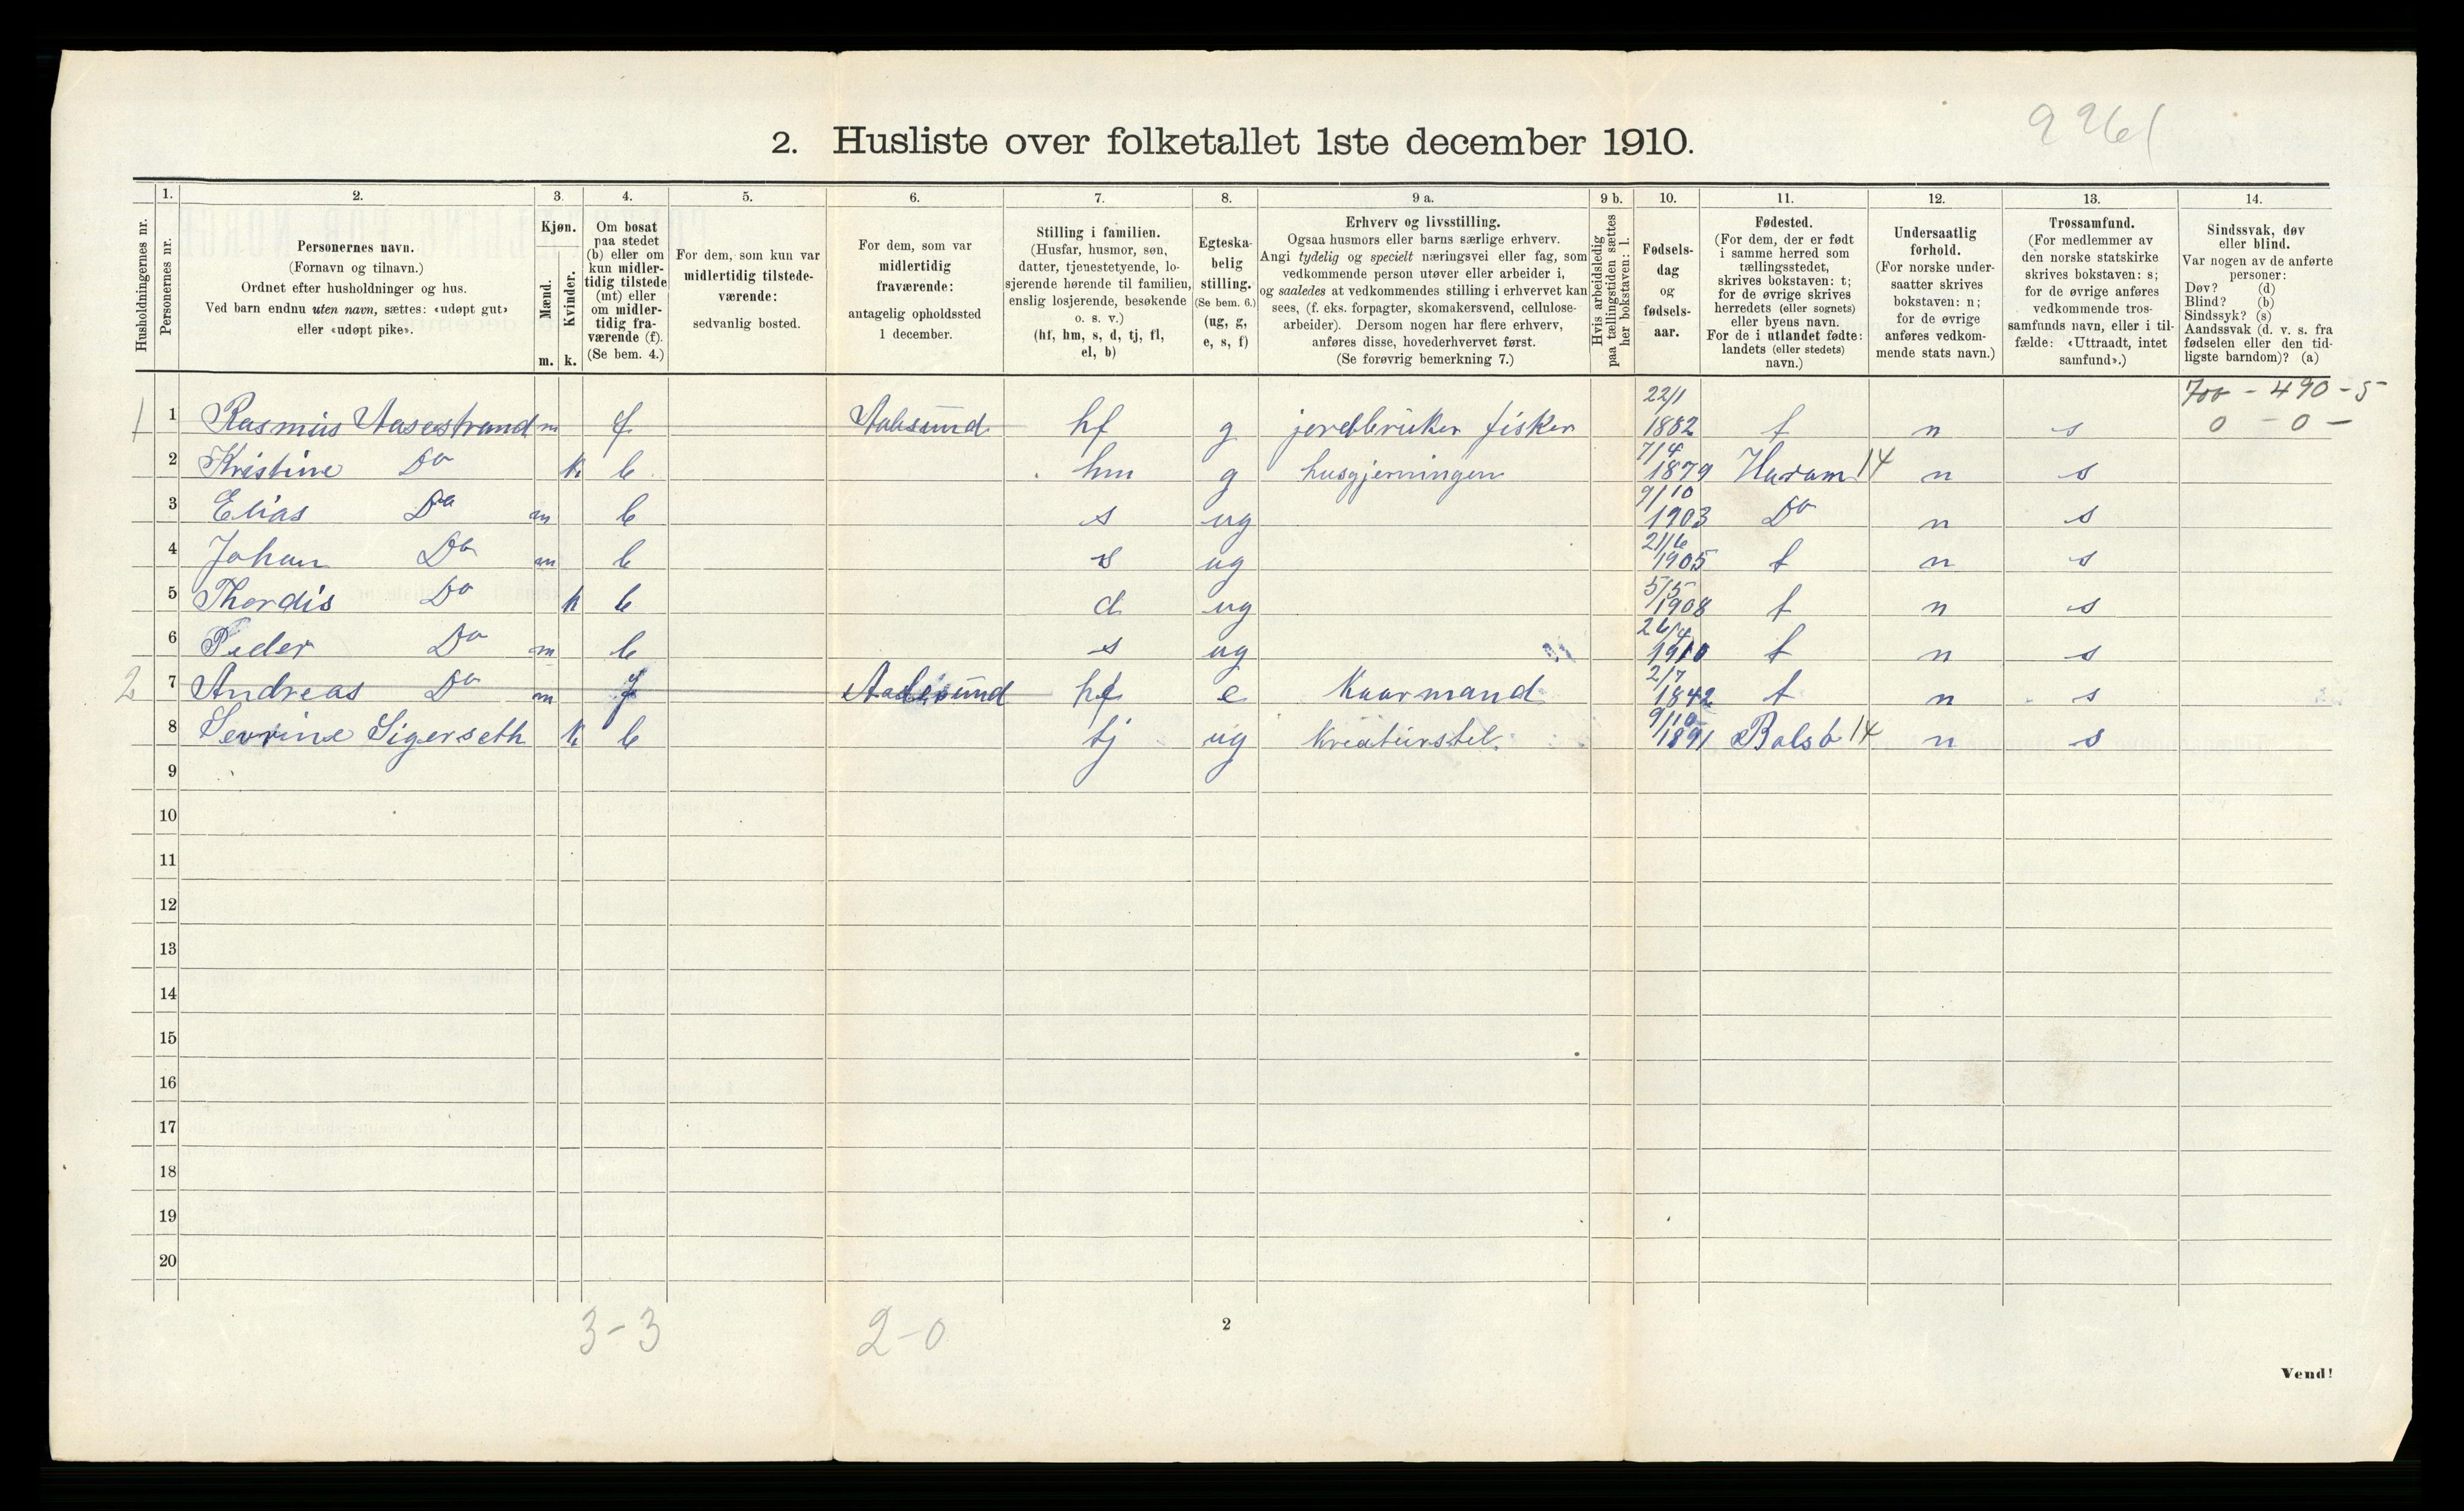 9961
2. Husliste over folketallet 1ste december 1910.
Husholdningernes nr.
1. Personernes nr.
2. Personernes navn. (Fornavn og tilnavn.) Ordnet efter husholdninger og hus. Ved barn endnu uten navn, sættes: «udøpt gut» eller «udøpt pike».
3. Kjøn. Mænd. m. Kvinder. k.
4. Om bosat paa stedet (b) eller om kun midlertidig tilstede (mt) eller om midlertidig fraværende (f). (Se bem. 4.)
5. For dem, som kun var midlertidig tilstedeværende: sedvanlig bosted.
6. For dem, som var midlertidig fraværende: antagelig opholdssted 1 december.
7. Stilling i familien. (Husfar, husmor, søn, datter, tjenestetyende, losjerende hørende til familien, enslig losjerende, besøkende o. s. v.) (hf, hm, s, d, tj, fl, el, b)
8. Egteskabelig stilling. (Se bem. 6.) (ug, g, e, s, f)
9 a. Erhverv og livsstilling. Ogsaa husmors eller barns særlige erhverv. Angi tydelig og specielt næringsvei eller fag, som vedkommende person utøver eller arbeider i, og saaledes at vedkommendes stilling i erhvervet kan sees, (f. eks. forpagter, skomakersvend, cellulosearbeider). Dersom nogen har flere erhverv, anføres disse, hovederhvervet først. (Se forøvrig bemerkning 7.)
9 b. Hvis arbeidsledig paa tællingstiden sættes her bokstaven: l.
10. Fødselsdag og fødselsaar.
11. Fødested. (For dem, der er født i samme herred som tællingsstedet, skrives bokstaven: t; for de øvrige skrives herredets (eller sognets) eller byens navn. For de i utlandet fødte: landets (eller stedets) navn.)
12. Undersaatlig forhold. (For norske undersaatter skrives bokstaven: n; for de øvrige anføres vedkommende stats navn.)
13. Trossamfund. (For medlemmer av den norske statskirke skrives bokstaven: s; for de øvrige anføres vedkommende trossamfunds navn, eller i tilfælde: «Uttraadt, intet samfund».)
14. Sindssvak, døv eller blind. Var nogen av de anførte personer: Døv? (d) Blind? (b) Sindssyk? (s) Aandssvak (d. v. s. fra fødselen eller den tidligste barndom)? (a)
700 - 490 - 5
1 1 Rasmus Aasestrand m f Aalesund hf g jordbruker fisker 22/1 1882 t n s 0 - 0 -
2 Kristine Do k b hm g husgjerningen 7/4 1879 Haram 14 n s
3 Elias Do m b s ug 9/10 1903 Do n s
4 Johan Do m b s ug 21/6 1905 t n s
5 Thordis Do k b d ug 5/5 1908 t n s
6 Peder Do m b s ug 26/4 1910 t n s
2 7 Andreas Do m f Aalesund hf e Kaarmand 2/7 1842 t n s
8 Sevrine Sigerseth k b tj ug Kreaturstel. 9/10 1891 Bolsö 14 n s
9
10
11
12
13
14
15
16
17
18
19
20
3-3 2-0
2
Vend!